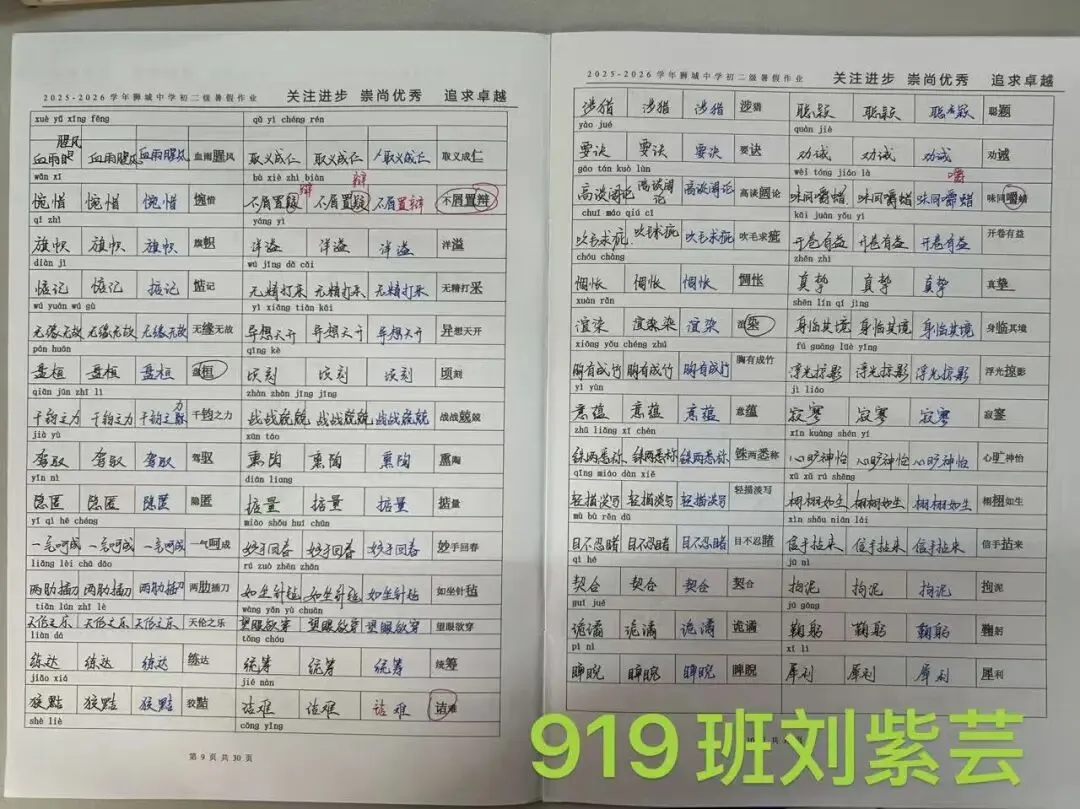 2025-2026学年狮城中学初二级暑假作业 关注进步 崇尚优秀 追求卓越
xuè yǔ xīng fēng qǔ yì chéng rén
腥风
血雨腥 血雨腥风 血雨腥风 血雨腥风 取义成仁 取义成仁 取义成仁 取义成仁
wǎn xī bù xiè zhì biàn
辩 辩
惋惜 惋惜 惋惜 惋惜 不屑置 不屑置 不屑置辩 不屑置辩
qí zhì yáng yì
旗帜 旗帜 旗帜 旗帜 洋溢 洋溢 洋溢 洋溢
diàn jì wú jīng dǎ cǎi
惦记 惦记 惦记 惦记 无精打采 无精打采 无精打采 无精打采
wú yuán wú gù yì xiǎng tiān kāi
无缘无故 无缘无故 无缘无故 无缘无故 异想天开 异想天开 异想天开 异想天开
pán huán qǐng kè
盘桓 盘桓 盘桓 盘桓 顷刻 顷刻 顷刻 顷刻
qiān jūn zhī lì zhàn zhàn jīng jīng
力
千钧之力 千钧之力 千钧之 千钧之力 战战兢兢 战战兢兢 战战兢兢 战战兢兢
jià yù xūn táo
驾驭 驾驭 驾驭 驾驭 熏陶 熏陶 熏陶 熏陶
yǐn nì diān liang
隐匿 隐匿 隐匿 隐匿 掂量 掂量 掂量 掂量
yī qì hē chéng miào shǒu huí chūn
一气呵成 一气呵成 一气呵成 一气呵成 妙手回春 妙手回春 妙手回春 妙手回春
liǎng lèi chā dāo rú zuò zhēn zhān
两肋插刀 两肋插刀 两肋插刀 两肋插刀 如坐针毡 如坐针毡 如坐针毡 如坐针毡
tiān lún zhī lè wàng yǎn yù chuān
天伦之乐 天伦之乐 天伦之乐 天伦之乐 望眼欲穿 望眼欲穿 望眼欲穿 望眼欲穿
liàn dá tǒng chóu
练达 练达 练达 练达 统筹 统筹 统筹 统筹
jiǎo xiá jié nàn
狡黠 狡黠 狡黠 狡黠 诘难 诘难 诘难 诘难
shè liè cōng yǐng
第 9 页 共 30 页
2025-2026学年狮城中学初二级暑假作业 关注进步 崇尚优秀 追求卓越
涉猎 涉猎 涉猎 涉猎 聪颖 聪颖 聪颖 聪颖
yào jué quàn jiè
要诀 要诀 要诀 要诀 劝诫 劝诫 劝诫 劝诫
gāo tán kuò lùn wèi tóng jiáo là
嚼
高谈阔论 高谈阔论 高谈阔论 高谈阔论 味同嚼蜡 味同嚼蜡 味同嚼蜡 味同嚼蜡
chuī máo qiú cī kāi juàn yǒu yì
吹毛求疵 吹毛求疵 吹毛求疵 吹毛求疵 开卷有益 开卷有益 开卷有益 开卷有益
chóu chàng zhēn zhì
惆怅 惆怅 惆怅 惆怅 真挚 真挚 真挚 真挚
xuàn rǎn shēn lín qí jìng
渲染 渲染染 渲染 渲染 身临其境 身临其境 身临其境 身临其境
xiōng yǒu chéng zhú fú guāng lüè yǐng
胸有成竹 胸有成竹 胸有成竹 胸有成竹 浮光掠影 浮光掠影 浮光掠影 浮光掠影
yì yùn jì liáo
意蕴 意蕴 意蕴 意蕴 寂寥 寂寥 寂寥 寂寥
zhū liǎng xī chèn xīn kuàng shén yí
铢两悉称 铢两悉称 铢两悉称 铢两悉称 心旷神怡 心旷神怡 心旷神怡 心旷神怡
qīng miáo dàn xiě xǔ xǔ rú shēng
轻描淡写 轻描淡写 轻描淡写 轻描淡写 栩栩如生 栩栩如生 栩栩如生 栩栩如生
mù bù rěn dǔ xìn shǒu niān lái
目不忍睹 目不忍睹 目不忍睹 目不忍睹 信手拈来 信手拈来 信手拈来 信手拈来
qì hé jū nì
契合 契合 契合 契合 拘泥 拘泥 拘泥 拘泥
guǐ jué jū gōng
诡谲 诡谲 诡谲 诡谲 鞠躬 鞠躬 鞠躬 鞠躬
pì nì xī lì
睥睨 睥睨 睥睨 睥睨 犀利 犀利 犀利 犀利
919班刘紫芸